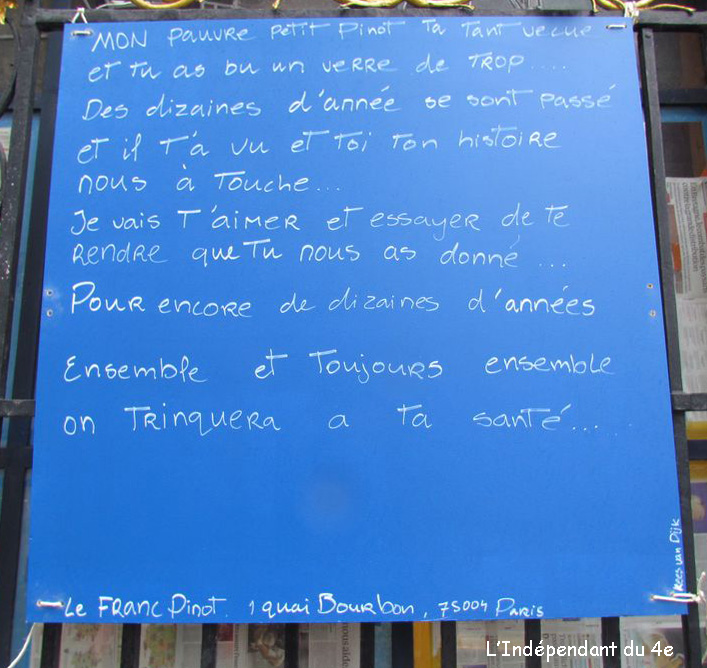 MON pauvre petit Pinot Ta Tant vecue
et tu as bu un verre de TROP.....
Des dizaines d'année se sont passé
et il T'a vu et toi ton histoire
nous à Touche...
Je vais T'aimer et essayer de te
rendre que Tu nous as donné ...
Pour encore de dizaines d'années
Ensemble et Toujours ensemble
on Trinquera a ta santé.....
Le Franc Pinot. 1 quai Bourbon, 75004 Paris
Kees van Dijk
L'Indépendant du 4e